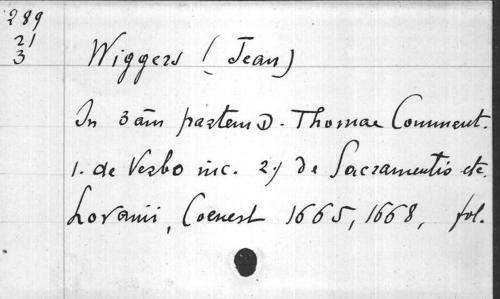 289
21
3
Wiggers (Jean)
In 3 am partem D. Thomae Comment.
1. de Verbo inc. 2) de Sacramentis etc.
Lovanii, Coenest 1665, 1668, fol.